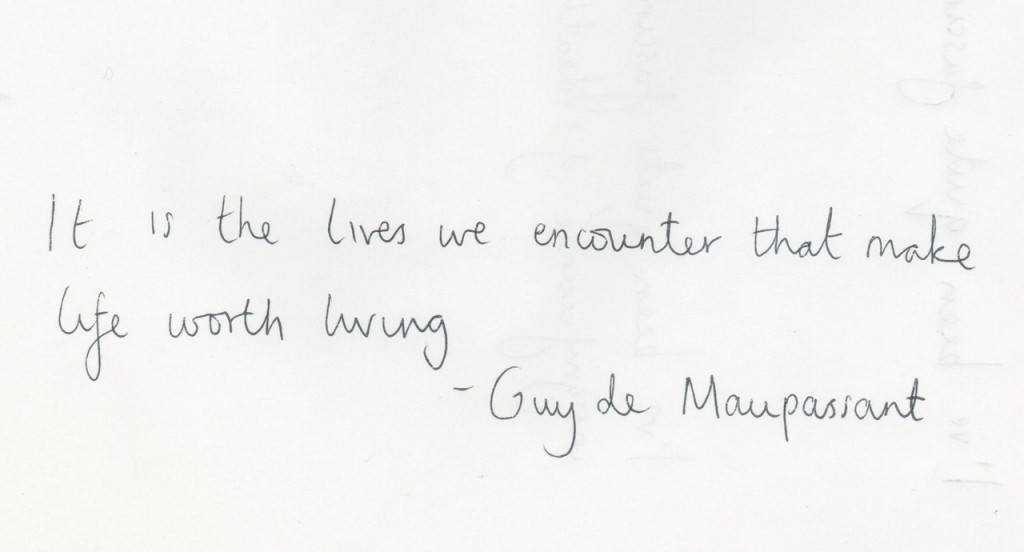 It is the lives we encounter that make
life worth living
- Guy de Maupassant